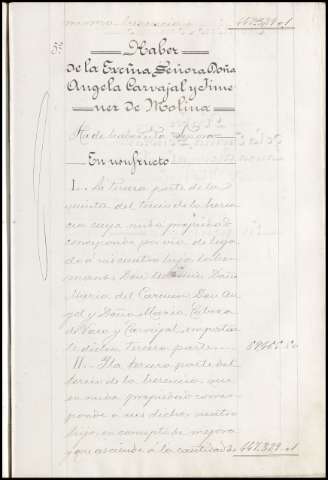 misma herencia 447.329 41
5º Haber
de la Excma. Señora Doña
Angela Carvajal y Jime-
nez de Molina
Ha de haber
En usufructo
I. La tercera parte de la
quinta del tercio de la heren-
cia cuya nuda propiedad
corresponde por via de lega-
do á sus cuatro hijos
Don Doña
Maria del Carmen, Don An-
gel y Doña Maria Cabeza
de Vaca y Carvajal, importan-
te dicha tercera parte
II. Otra tercera parte del
tercio de la herencia, que
en nuda propiedad corres-
ponde á sus dichos cuatro
hijos en concepto de mejora
y que asciende á la cantidad de 447.329 41